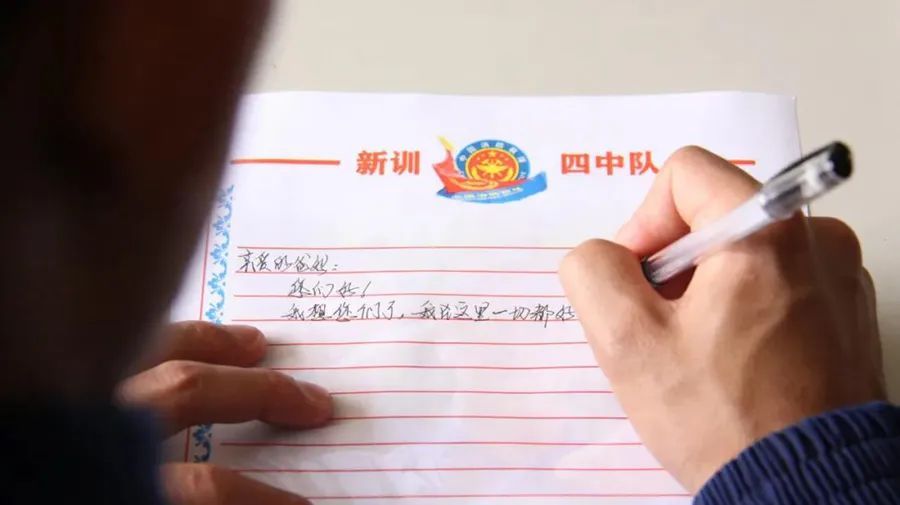 新训 四中队
亲爱的爸妈：
您们好！
我想您们了，我在这里一切都好